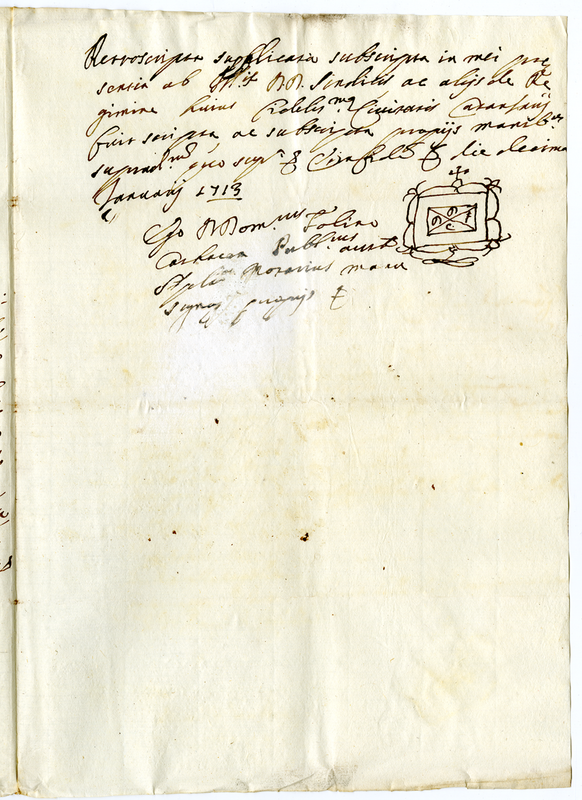 Retroscripta supplicata subscripta in mei pre
sentia ab Ill.is DD. Sindicis ac alijs de Re
gimine huius fidelis.me Civitatis Catanzarij
fuit scripta ac subscripta proprijs manib.us
suprad. quo sup.a & in fidem & die decima
Januarij 1713
Ego D Dom.cus Folino
Publicus
Notarius manu
signavi proprijs &